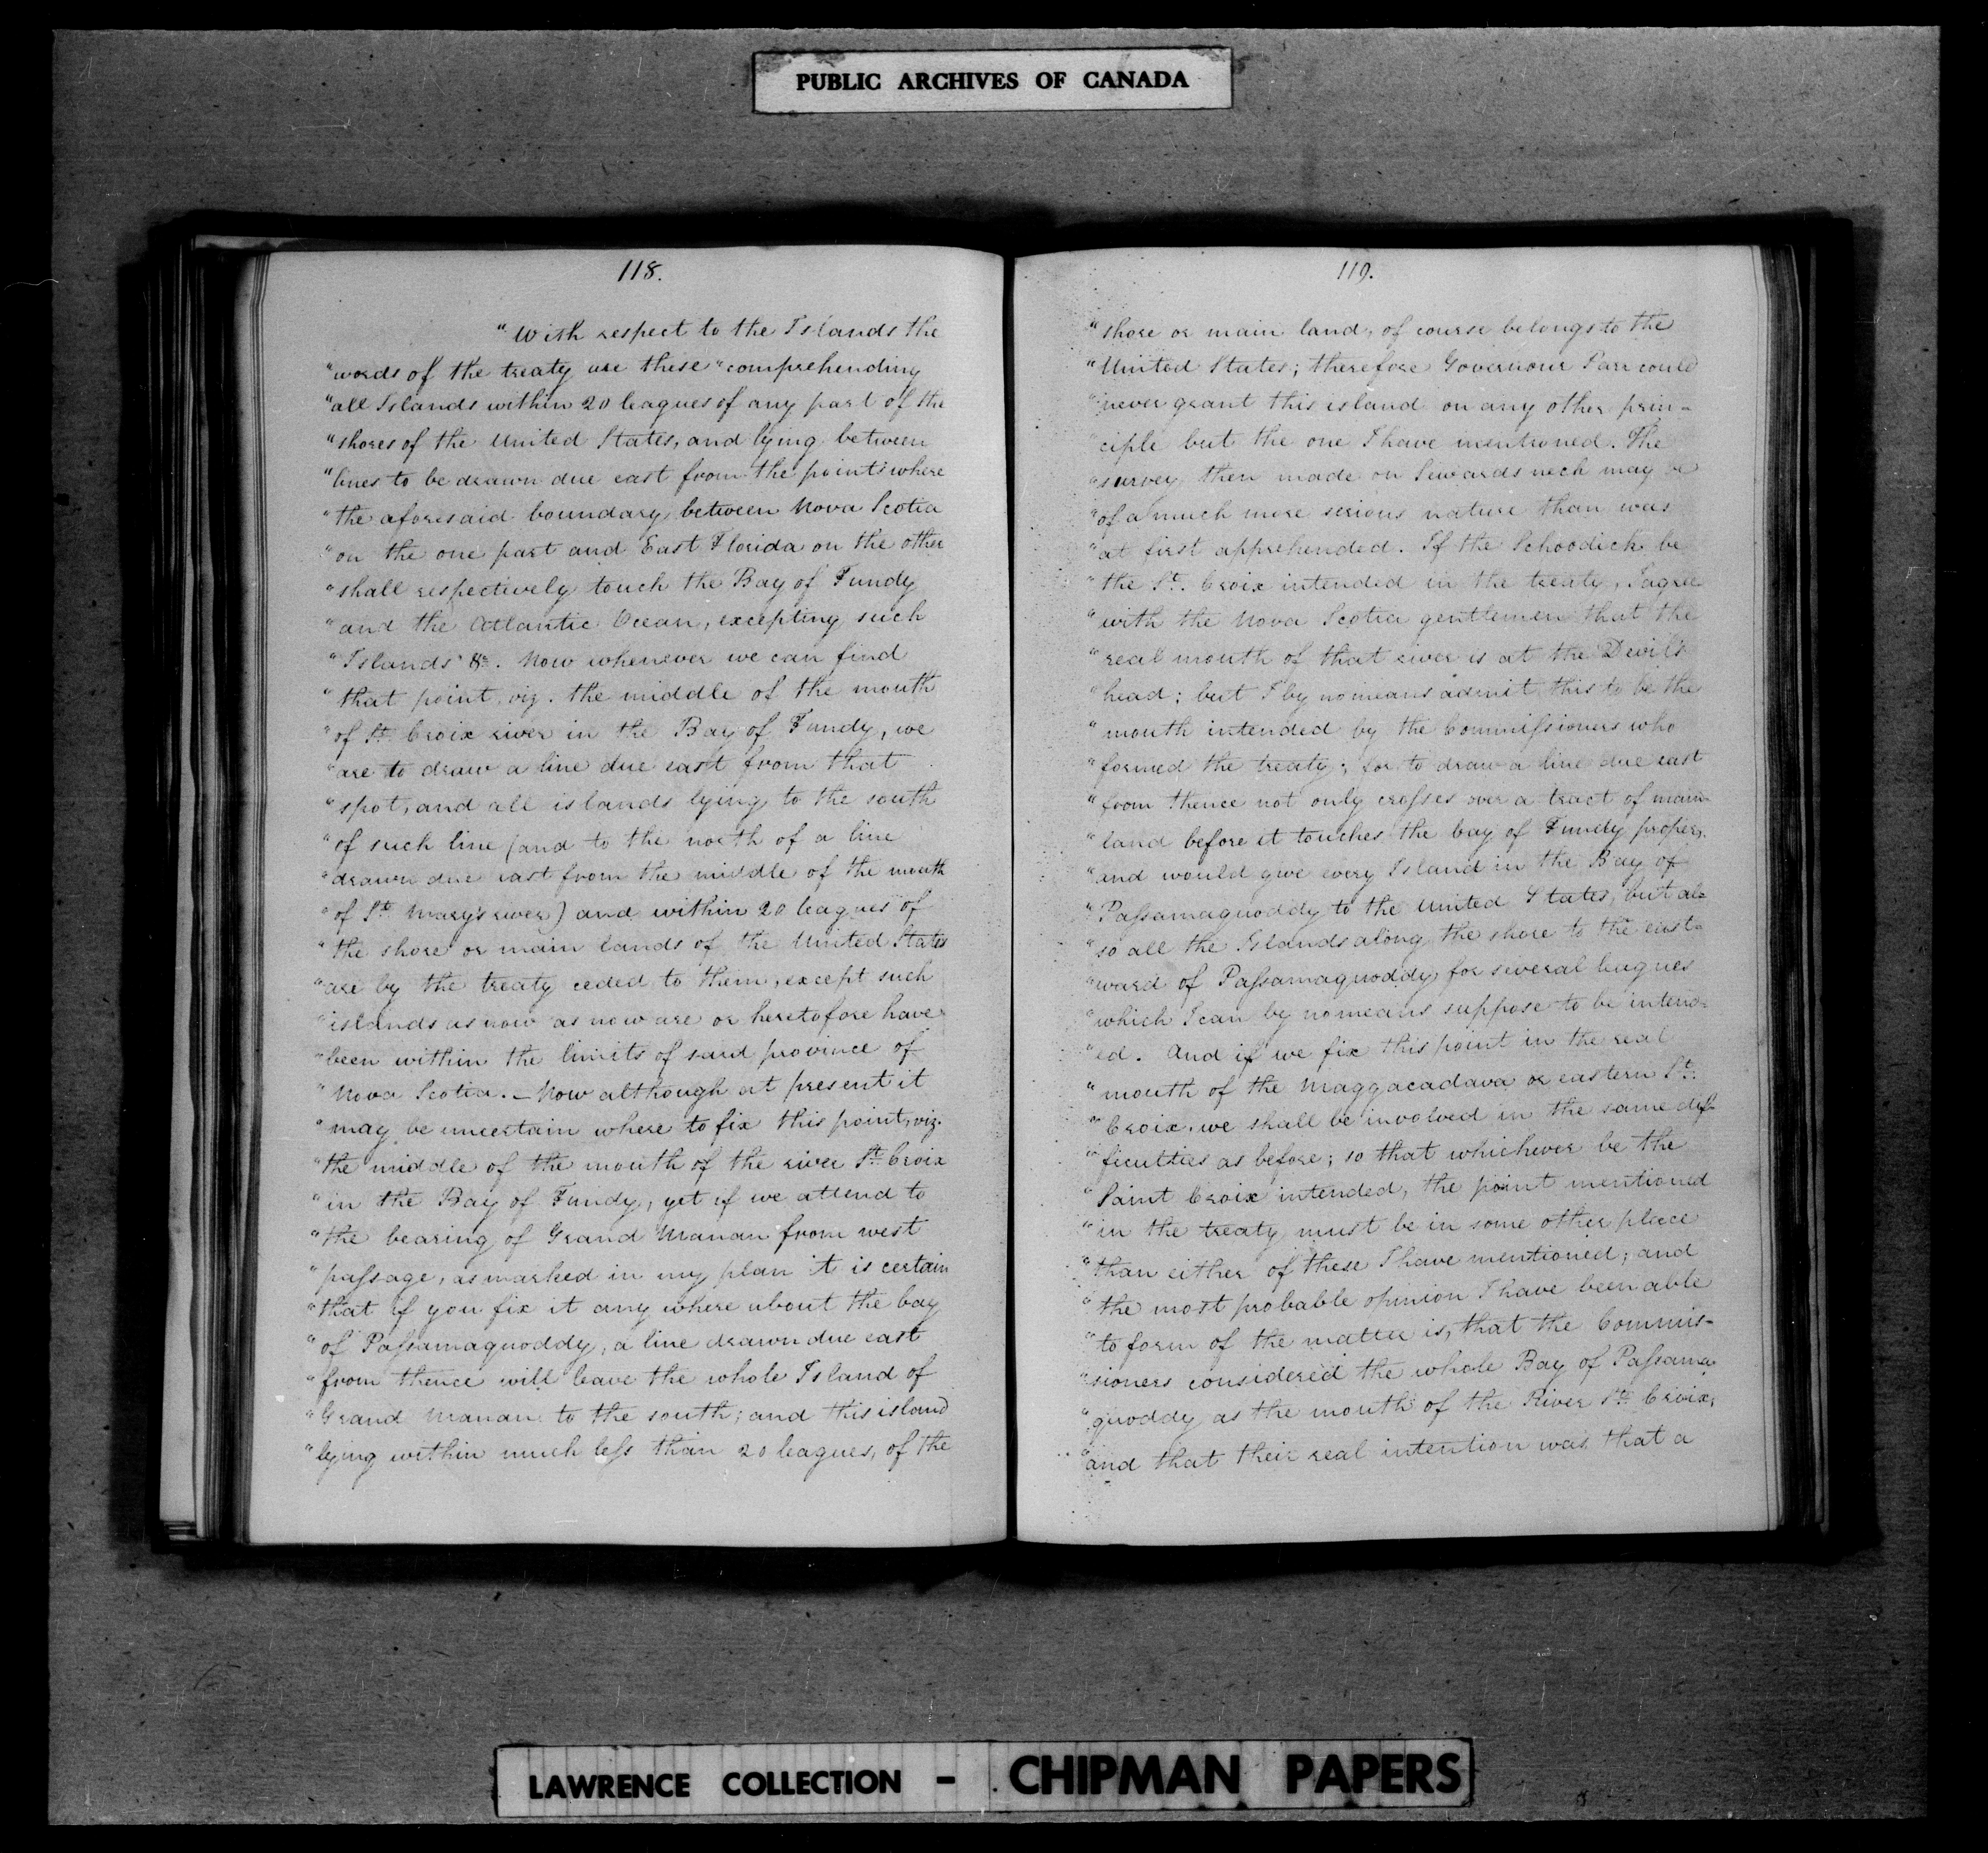 PUBLIC ARCHIVES OF CANADA
118.
"With respect to the Islands the
"words of the treaty are these "comprehending
"all Islands within 20 leagues of any part of the
"shores of the United States, and lying between
"lines to be drawn due east from the points where
"the aforesaid boundary between Nova Scotia
"on the one part and East Florida on the other
"shall respectively touch the Bay of Fundy
"and the Atlantic Ocean, excepting such
"Islands" &c. Now whenever we can find
"that point, viz. the middle of the mouth
"of St. Croix river in the Bay of Fundy, we
"are to draw a line due east from that
"spot, and all islands lying to the south
"of such line (and to the north of a line
"drawn due east from the middle of the mouth
"of St. Mary's river) and within 20 leagues of
"the shore or main lands of the United States
"are by the treaty ceded to them, except such
"islands as now as now are or heretofore have
"been within the limits of said province of
"Nova Scotia. — Now although at present it
"may be uncertain where to fix this point, viz.
"the middle of the mouth of the river St. Croix
"in the Bay of Fundy, yet if we attend to
"the bearing of Grand Manan from west
"passage, as marked in my plan it is certain
"that if you fix it any where about the bay
"of Passamaquoddy, a line drawn due east
"from thence will leave the whole Island of
"Grand Manan to the south; and this island
"lying within much less than 20 leagues, of the
119.
"shore or main land, of course belongs to the
"United States; therefore Governour Parr could
"never grant this island on any other prin-
"ciple but the one I have mentioned. The
"survey then made on Sewards neck may be
"of a much more serious nature than was
"at first apprehended. If the Schoodick be
"the St. Croix intended in the treaty, I agree
"with the Nova Scotia gentlemen that the
"real mouth of that river is at the Devil's
"head; but I by no means admit this to be the
"mouth intended by the Commissioners who
"formed the treaty; for to draw a line due east
"from thence not only crosses over a tract of main
"land before it touches the bay of Fundy proper,
"and would give every Island in the Bay of
"Passamaquoddy to the United States, but al=
"so all the Islands along the shore to the east=
"ward of Passamaquoddy for several leagues
"which I can by no means suppose to be intend=
"ed. And if we fix this point in the real
"mouth of the Maggacadava or eastern St.
"Croix, we shall be involved in the same dif-
"ficulties as before; so that whichever be the
"Saint Croix intended, the point mentioned
"in the treaty must be in some other place
"than either of these I have mentioned; and
"the most probable opinion I have been able
"to form of the matter is, that the Commis-
"sioners considered the whole Bay of Passama
"quoddy as the mouth of the River St. Croix,
"and that their real intention was that a
LAWRENCE COLLECTION - CHIPMAN PAPERS